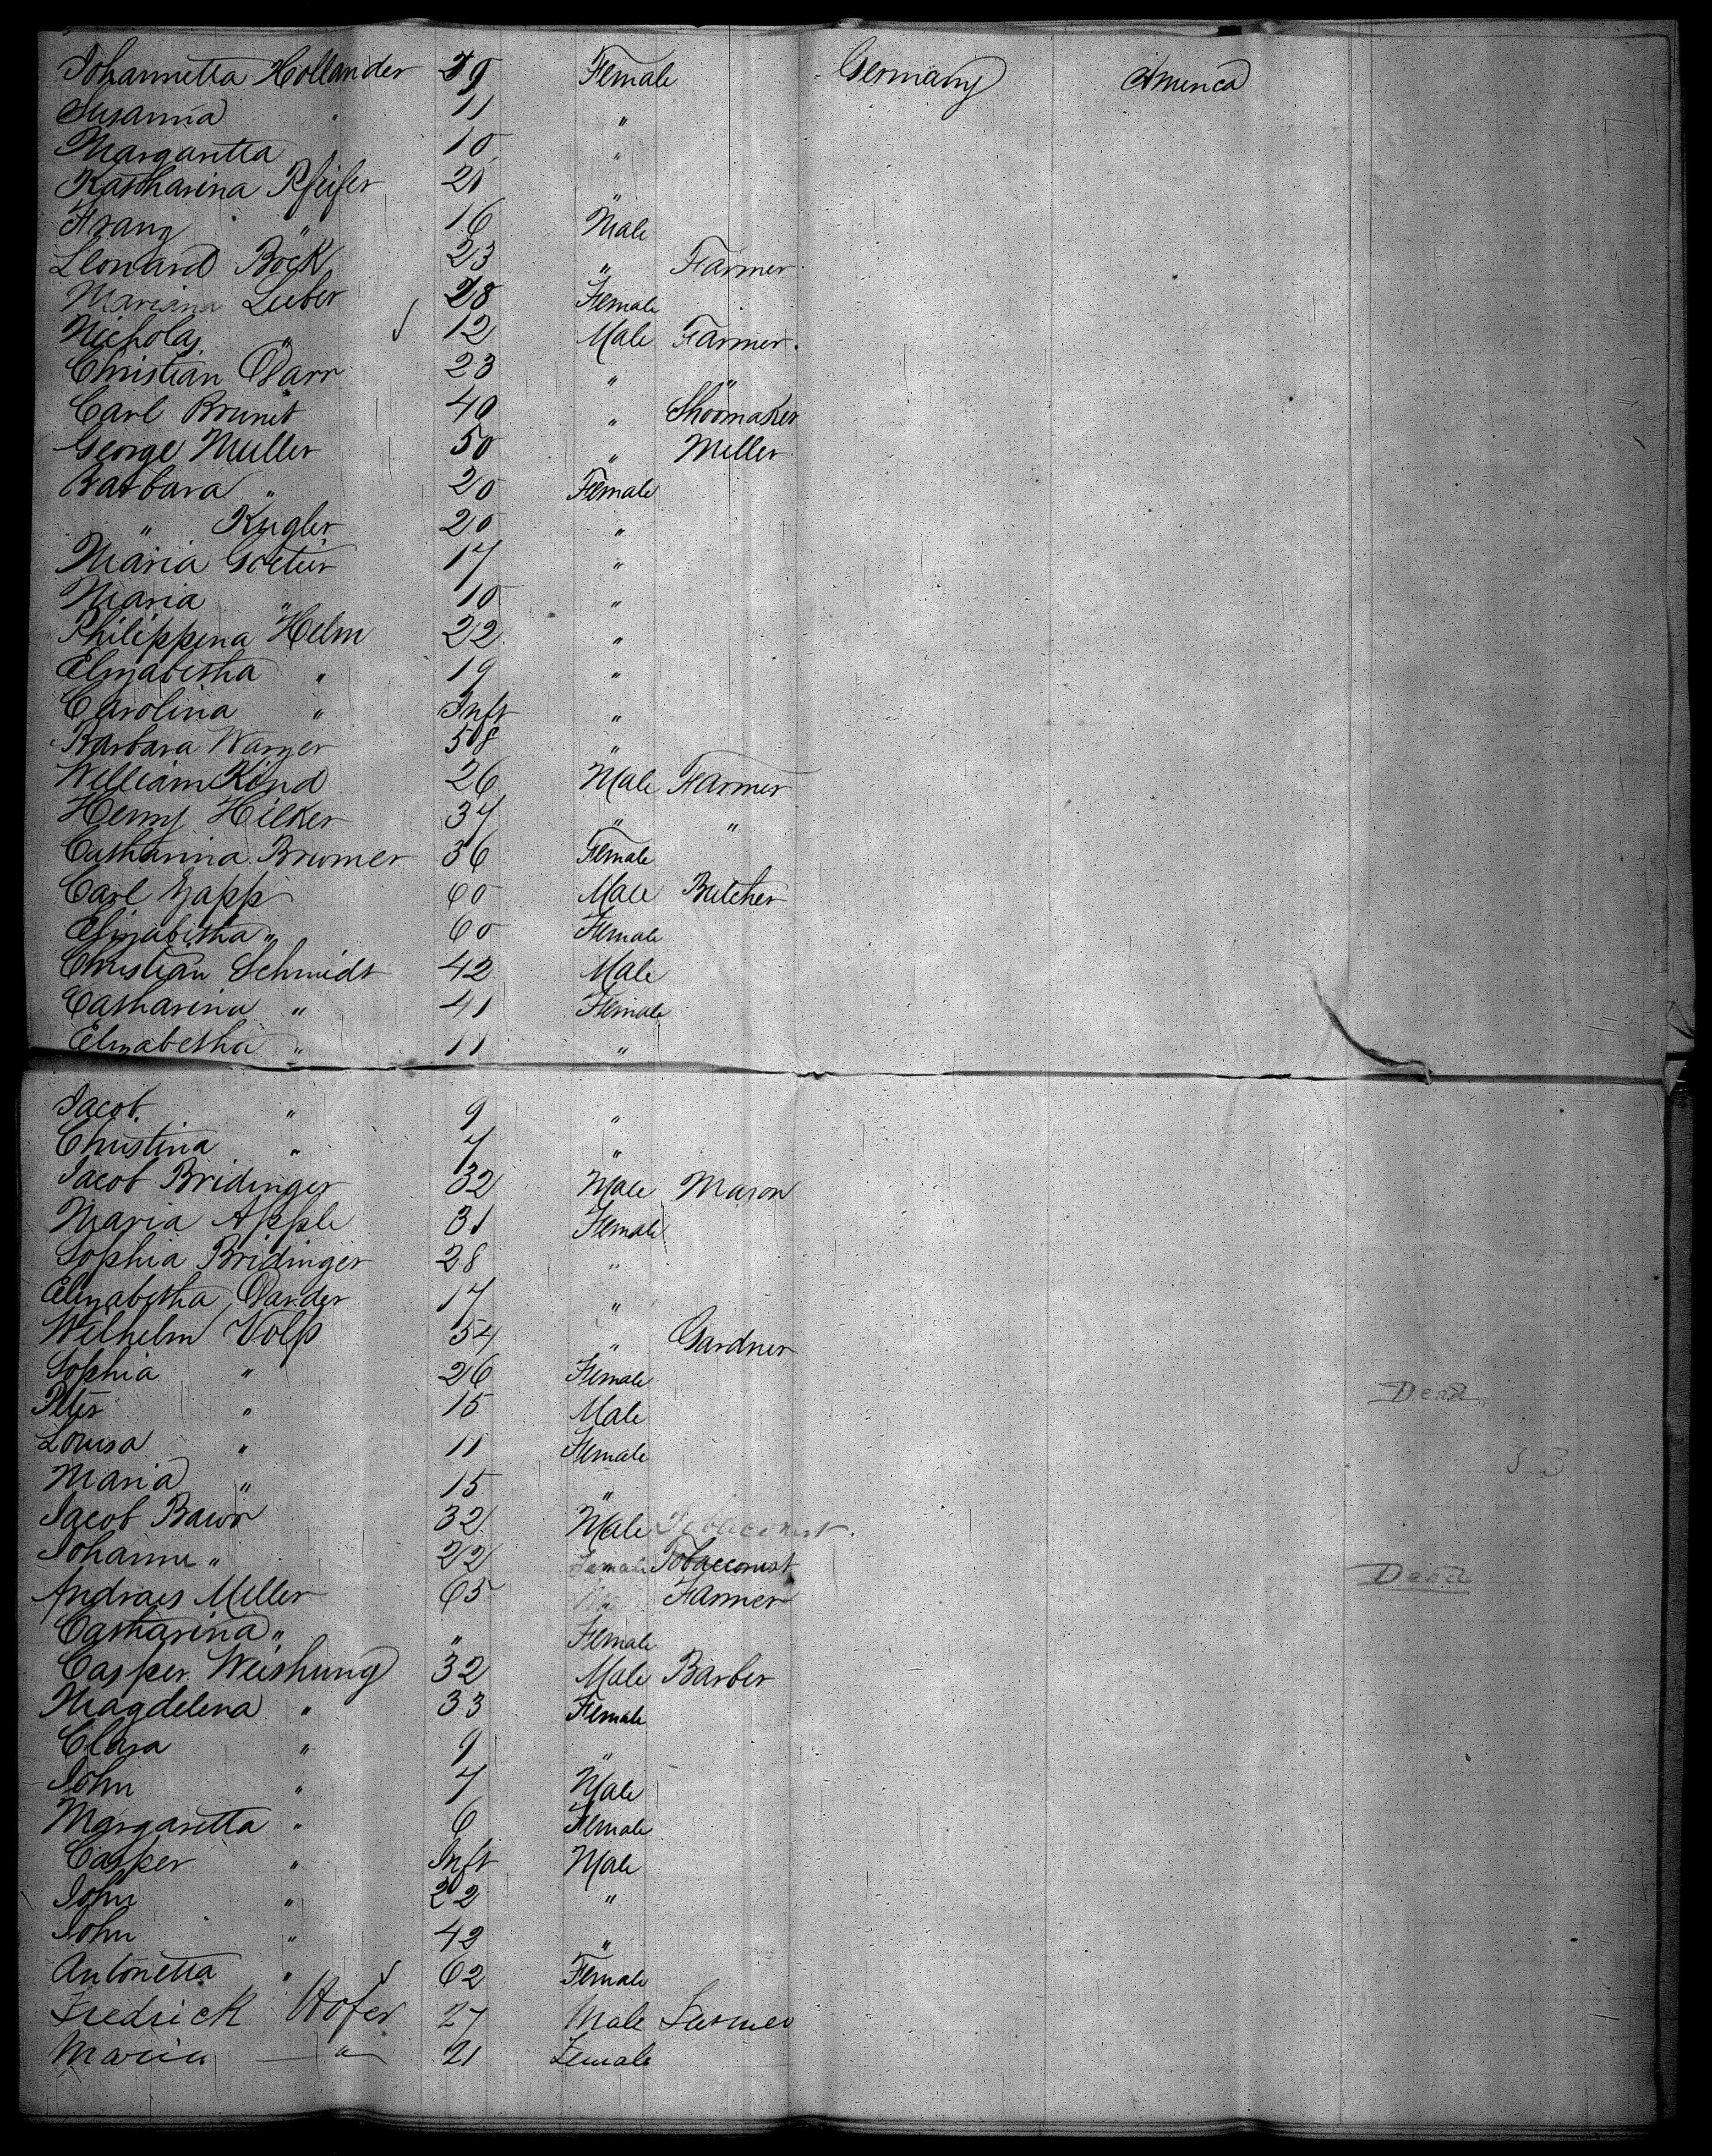 Johannetta Hollander 39 Female Germany America
Susanna 11 "
Margaretta 10 "
Katharina Pfeifer 21 "
Franz " 16 Male
Leonard Bock 23 " Farmer
Mariana Lieber 28 Female
Nicholas " 12 Male Farmer
Christian Darr 23 " "
Carl Brunet 40 " Shoomaker
George Muller 50 " Miller
Barbara " 20 Female
" Kugler 20 "
Maria 17 "
Maria " 10 "
Philippena Helm 22 "
Elizabetha " 19 "
Carolina " Inft "
Barbara Warner 58 "
William Kind 26 Male Farmer
Henry Hilker 34 " "
Catharina Brumer 36 Female
Carl Zapp 60 Male Butcher
Elizabetha " 60 Female
Christian Schmidt 42 Male
Catharina " 41 Female
Elizabetha " 11 "
Jacob " 9 "
Christina " 7 "
Jacob Bridinger 32 Male Mason
Maria Apple 31 Female
Sophia Bridinger 28 "
Elizabetha Darder 17 "
Wilhelm Volp 54 " Gardner
Sophia " 26 Female
Peter " 15 Male Dead
Louisa " 11 Female
Maria " 15 "
Jacob Bawr 32 Male Tobaconist
Johanne " 22 Female Tobacconist
Andraes Miller 65 " Farmer Dead
Catharina " " Female
Casper Weishung 32 Male Barber
Magdelena " 33 Female
Clara " 9 "
John " 7 Male
Margaretta " 6 Female
Casper " Inft Male
John " 22 "
John " 42 "
Antonetta " 62 Female
Fredrick Hofer 27 Male Farmer
Maria " 21 Female